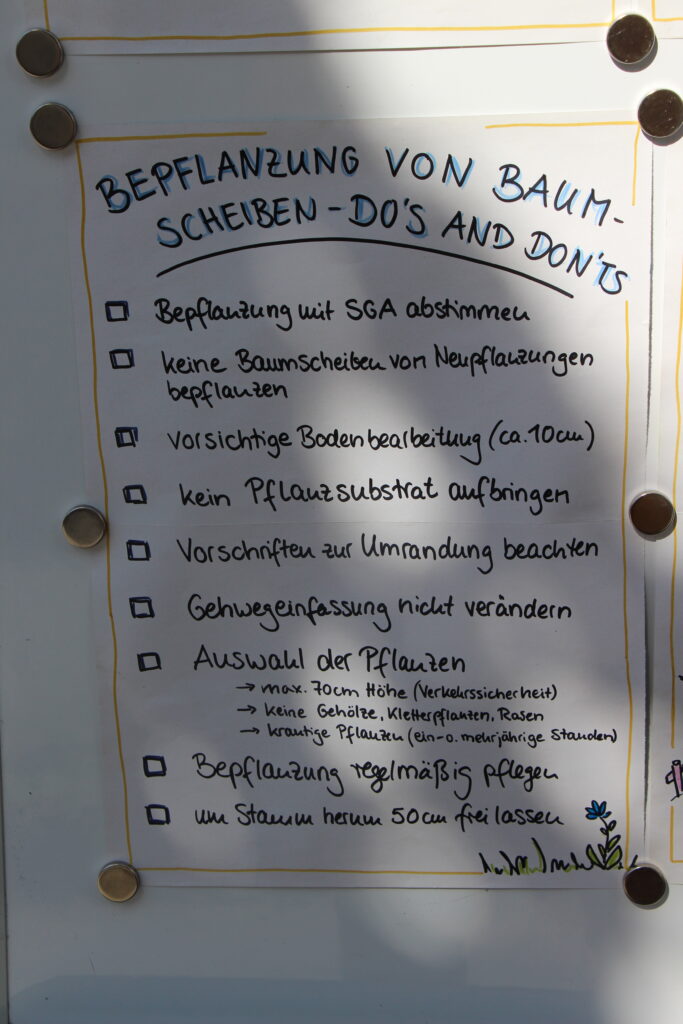 BEPFLANZUNG VON BAUM-
SCHEIBEN - DO'S AND DON'TS
Bepflanzung mit SGA abstimmen
keine Baumscheiben von Neupflanzungen
bepflanzen
vorsichtige Bodenbearbeitung (ca. 10cm)
kein Pflanzsubstrat aufbringen
Vorschriften zur Umrandung beachten
Gehwegeinfassung nicht verändern
Auswahl der Pflanzen
→ max. 70cm Höhe (Verkehrssicherheit)
→ keine Gehölze, Kletterpflanzen, Rasen
→ krautige Pflanzen (ein- o. mehrjährige Stauden)
Bepflanzung regelmäßig pflegen
um Stamm herum 50cm frei lassen